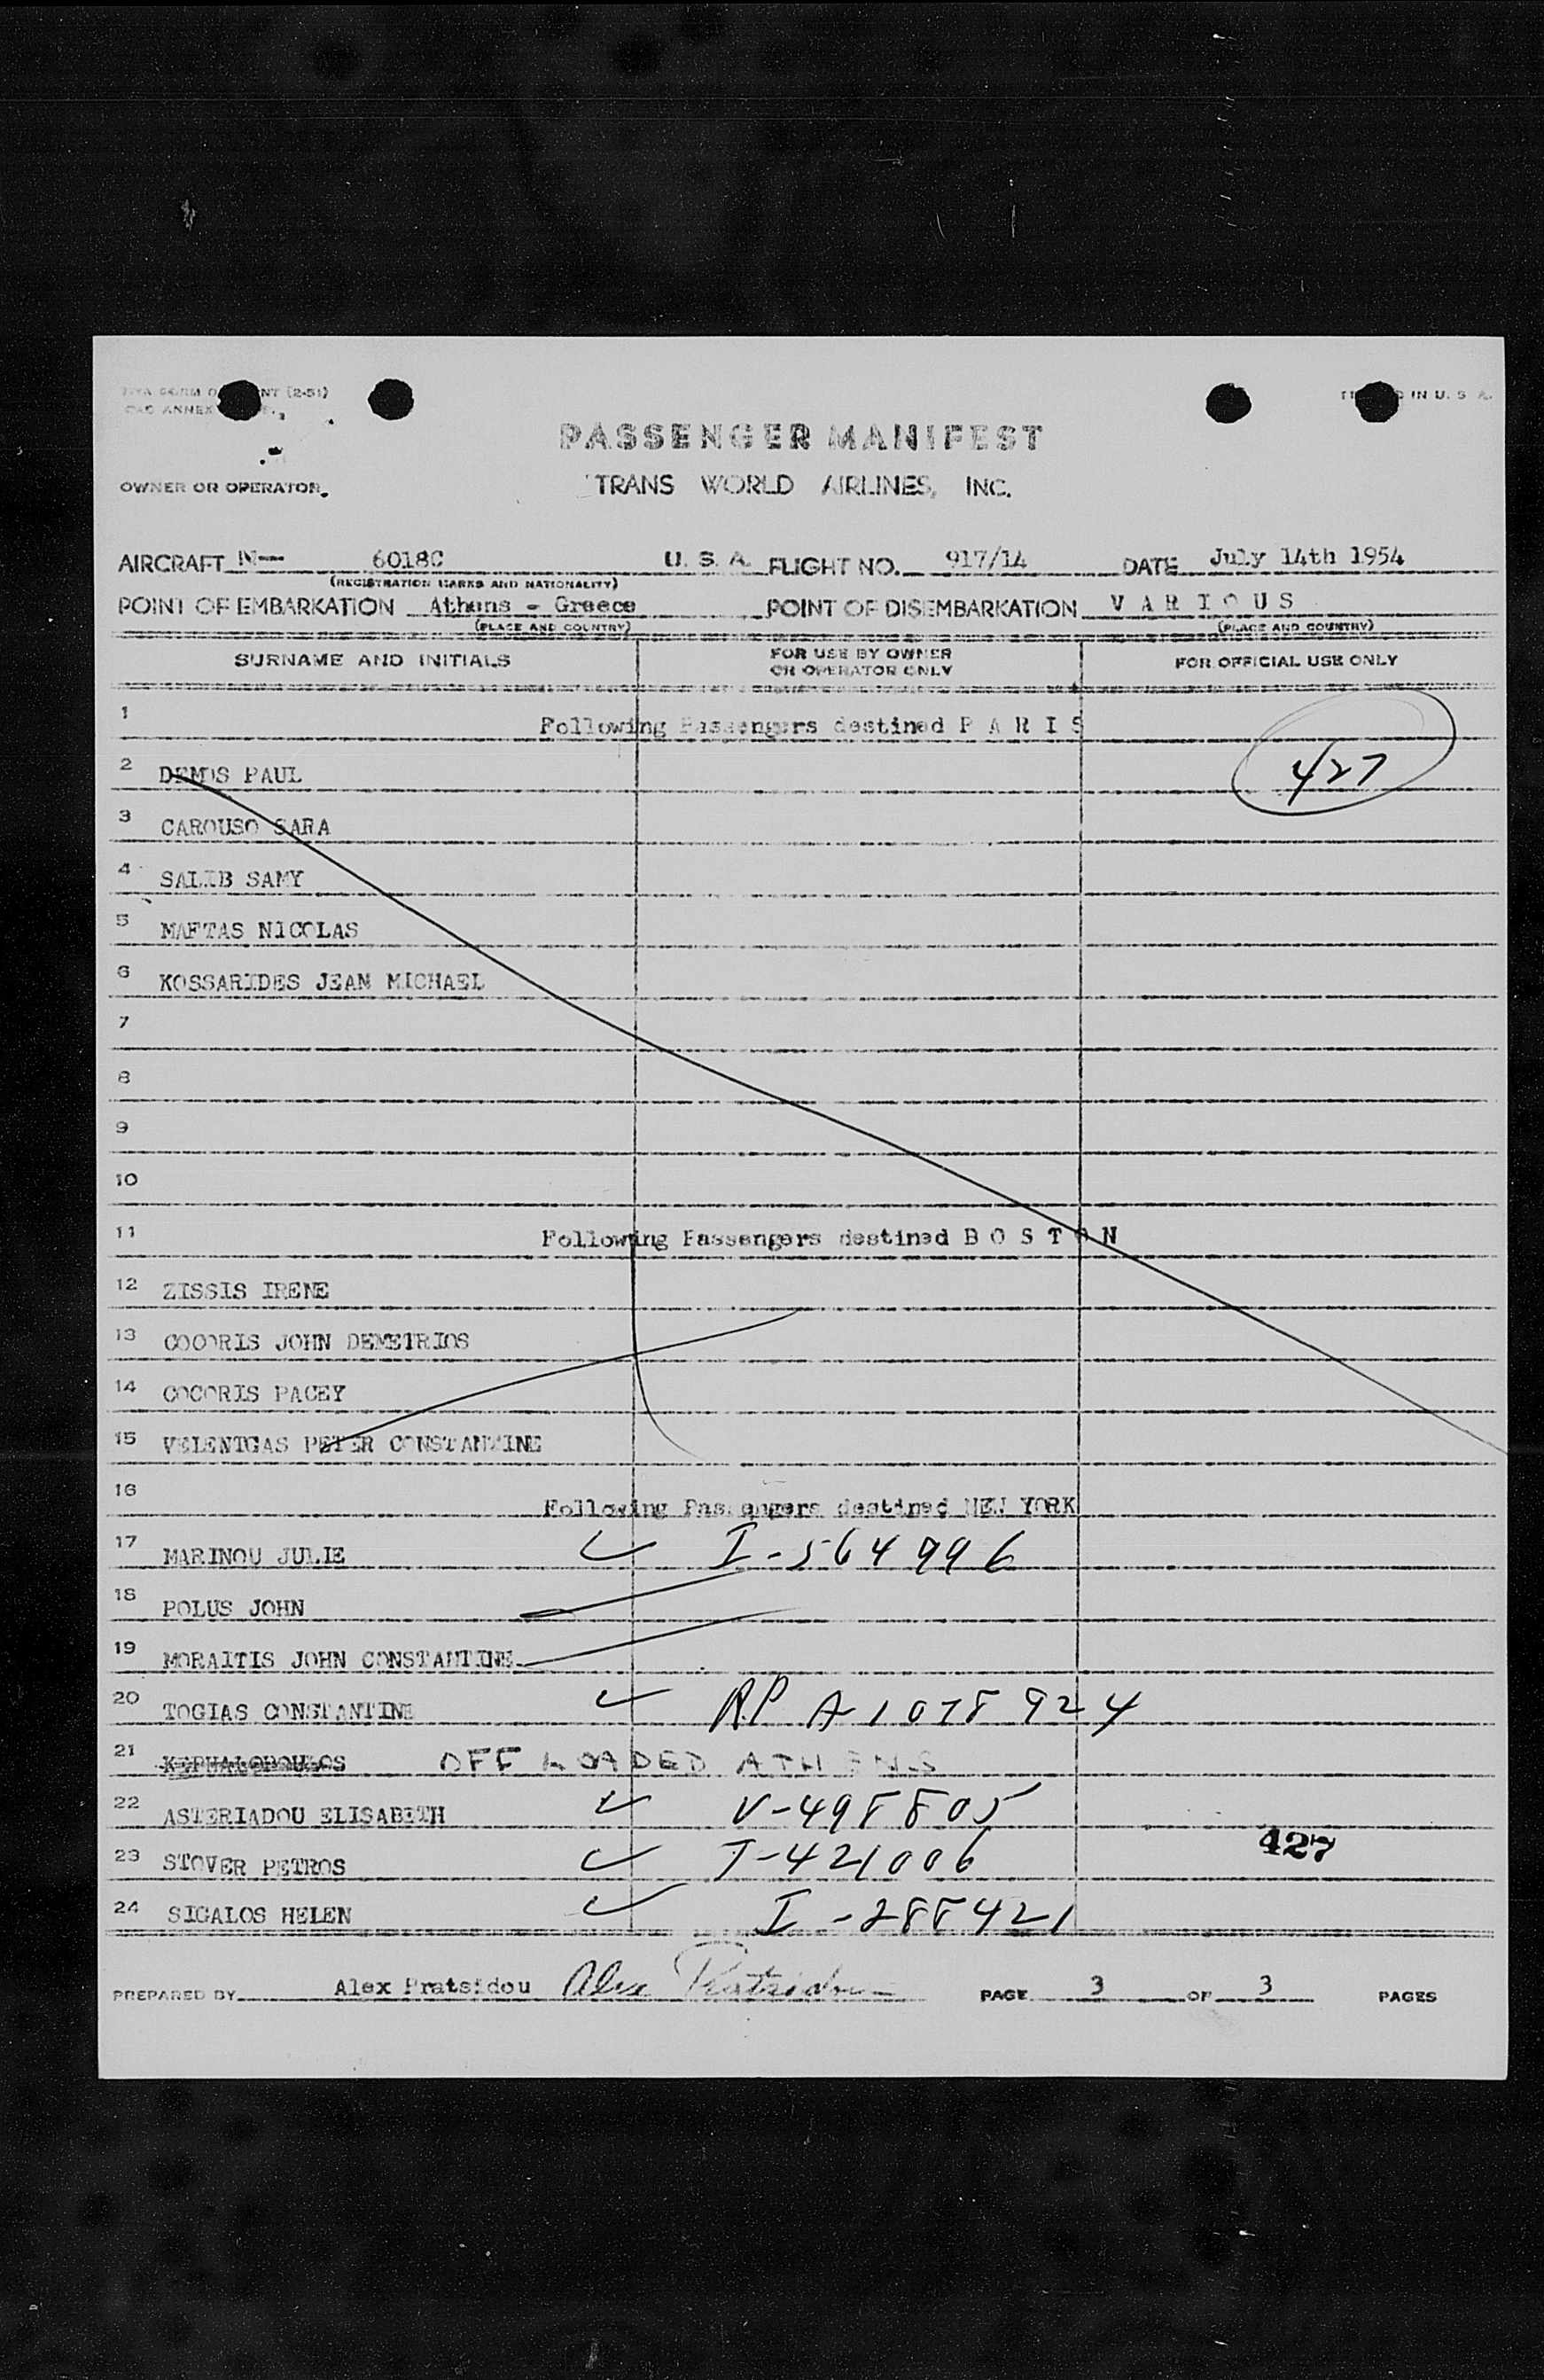 PASSENGER MANIFEST
OWNER OR OPERATOR. TRANS WORLD AIRLINES, INC.
AIRCRAFT N— 6018C U. S. A. FLIGHT NO. 917/14 DATE July 14th 1954
(REGISTRATION MARKS AND NATIONALITY)
POINT OF EMBARKATION Athens - Greece POINT OF DISEMBARKATION V A R I O U S
(PLACE AND COUNTRY) (PLACE AND COUNTRY)
SURNAME AND INITIALS FOR USE BY OWNER OR OPERATOR ONLY FOR OFFICIAL USE ONLY
1 Following Passengers destined P A R I S
427
2 DEMOS PAUL
3 CAROUSO SARA
4 SALIB SAMY
5 MAFTAS NICOLAS
6 KOSSARIDES JEAN MICHAEL
7
8
9
10
11 Following Passengers destined B O S T O N
12 ZISSIS IRENE
13 COCORIS JOHN DEMETRIOS
14 COCORIS PACEY
15 VELENTGAS PETER CONSTANTINE
16 Following Passengers destined NEW YORK
17 MARINOU JULIE I-564996
18 POLUS JOHN
19 MORAITIS JOHN CONSTANTINE
20 TOGIAS CONSTANTINE RP A-1078924
21 KEPHALOPOULOS OFF LOADED ATHENS
22 ASTERIADOU ELISABETH V-498805
23 STOVER PETROS I-421006 427
24 SIGALOS HELEN I-288421
PREPARED BY Alex Pratsidou Alex Pratsidou PAGE 3 OF 3 PAGES